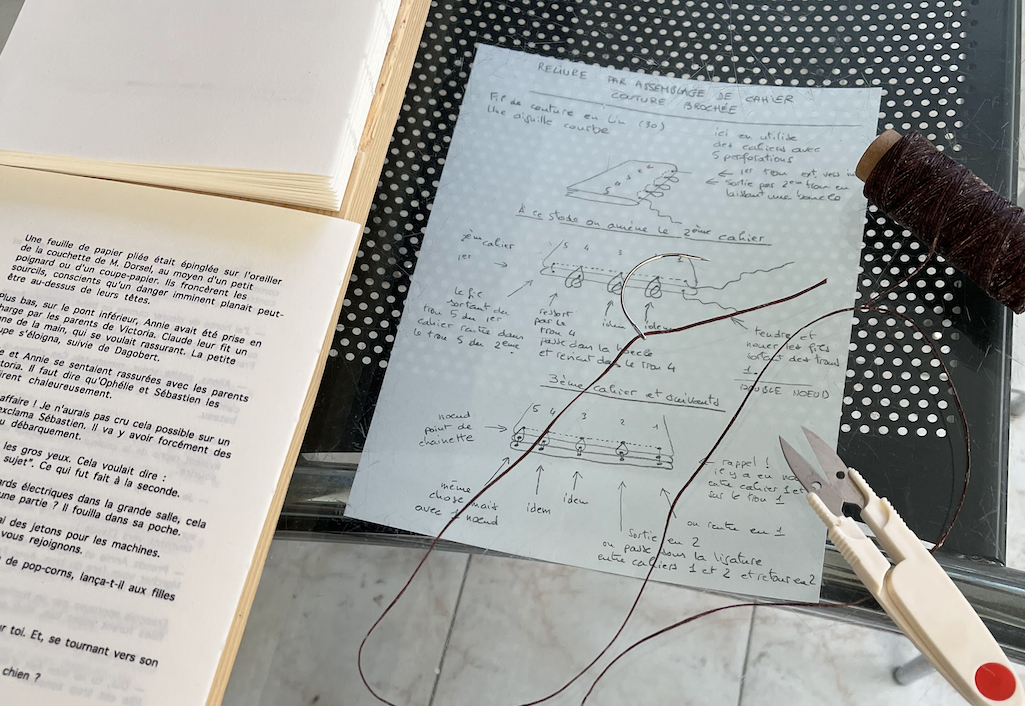 Une feuille de papier pliée était épinglée sur l'oreiller
de la couchette de M. Dorsel, au moyen d'un petit
poignard ou d'un coupe-papier. Ils froncèrent les
sourcils, conscients qu'un danger imminent planait peut-
être au-dessus de leurs têtes.
Plus bas, sur le pont inférieur, Annie avait été prise en
charge par les parents de Victoria. Claude leur fit un
de la main, qui se voulait rassurant. La petite
s'éloigna, suivie de Dagobert.
e et Annie se sentaient rassurées avec les parents
toria. Il faut dire qu'Ophélie et Sébastien les
irent chaleureusement.
affaire ! Je n'aurais pas cru cela possible sur un
exclama Sébastien. Il va y avoir forcément des
u débarquement.
les gros yeux. Cela voulait dire :
sujet". Ce qui fut fait à la seconde.
ards électriques dans la grande salle, cela
une partie ? Il fouilla dans sa poche.
al des jetons pour les machines.
vous rejoignons.
de pop-corns, lança-t-il aux filles
r toi. Et, se tournant vers son
chien ?
RELIURE PAR ASSEMBLAGE DE CAHIER
COUTURE BROCHÉE
Fil de couture en Lin (30)
Une aiguille courbe
ici on utilise
des cahiers avec
5 perforations
← 1er trou ext. vers
← Sortie par 2ème trou en
laissant une boucle
À ce stade on amène le 2ème cahier
2ème cahier
1er
5 4 3
le fil
sortant du
trou 5 du 1er
cahier rentre dans
le trou 5 du 2ème
ressort
par le
trou 4
passe dans la boucle
et revient dans le trou 4
idem
idem
tendre et
nouer les fils
sortant des trous
1
DOUBLE NOEUD
3ème cahier et suivants
5 4 3 2 1
noeud
point de
chainette
même
chose mais
avec 1 noeud
idem
idem
Sortie en 2
on passe sous la ligature
entre cahiers 1 et 2 et retour en 2
rappel !
il y a un
entre cahier 1 et
sur le trou 1
on rentre en 1